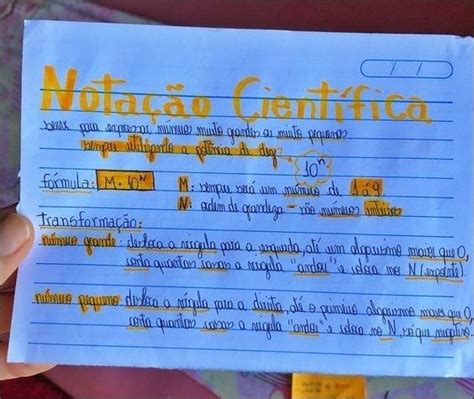 Notação Científica
serve para expressar números muito grandes ou muito pequenos
sempre utilizando a potência de dez
10ⁿ
fórmula: M · 10ᴺ
M: sempre será um número de 1 a 9
N: ordem de grandeza - são numeros inteiros
Transformação:
número grande: desloca a vírgula para a esquerda, até um algarismo maior que 0,
conta quantas casas a vírgula "andou" e coloca no N (expoente)
número pequeno: desloca a vírgula para a direita, até o primeiro algarismo maior que 0,
conta quantas casas a vírgula "andou" e coloca no N, só que negativo.